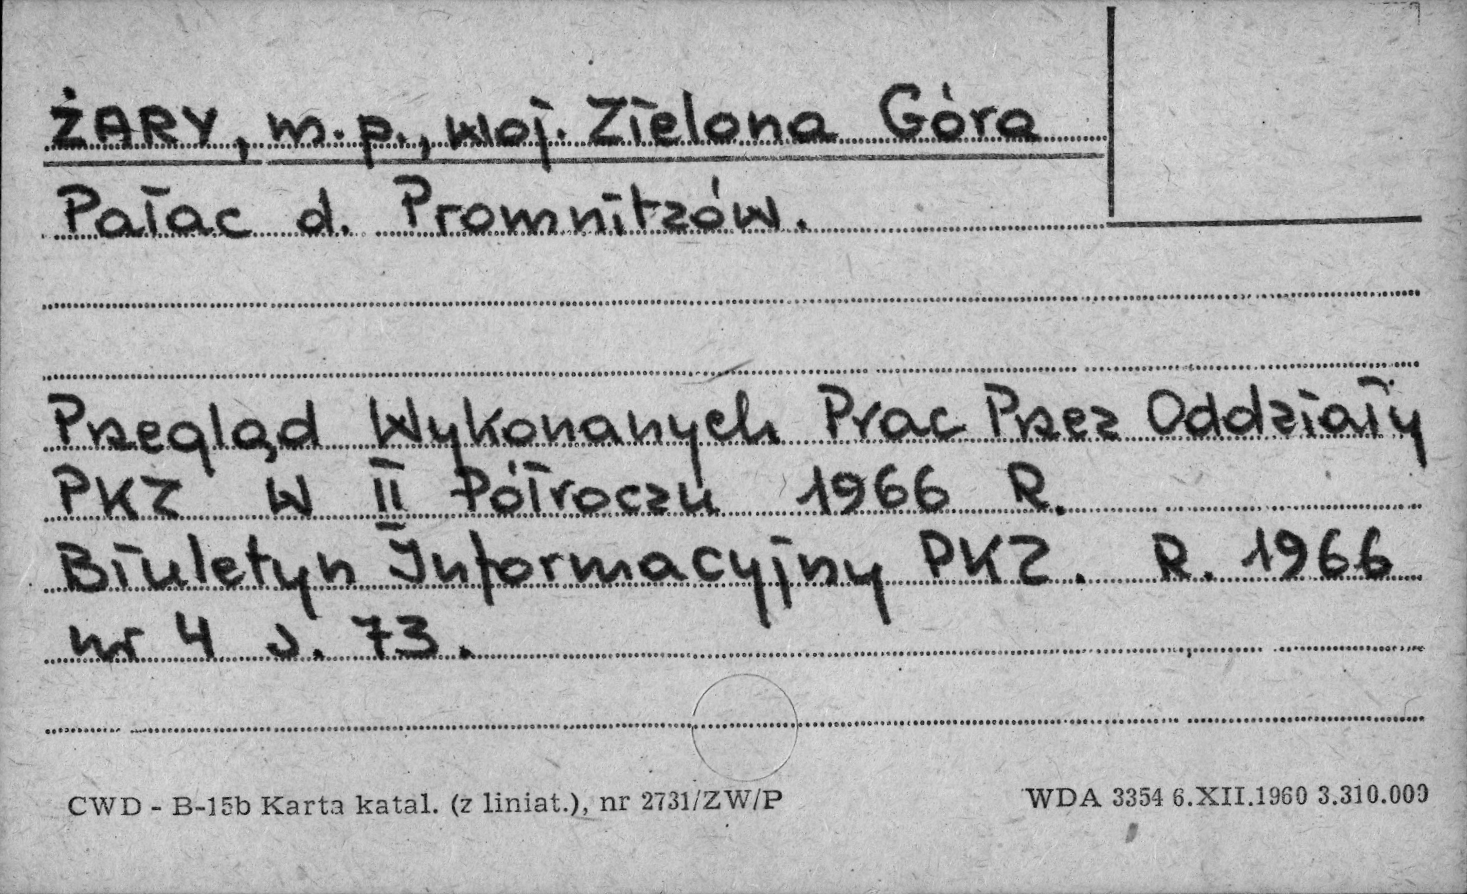 ŻARY, m.p., woj. Zielona Góra
Pałac d. Promnitzów.
Przegląd Wykonanych Prac Przez Oddziały
PKZ W II Półroczu 1966 R.
Biuletyn Informacyjny PKZ. R. 1966
nr 4 s. 73.
CWD - B-15b Karta katal. (z liniat.), nr 2731/ZW/P
WDA 3354 6.XII.1960 3.310.000